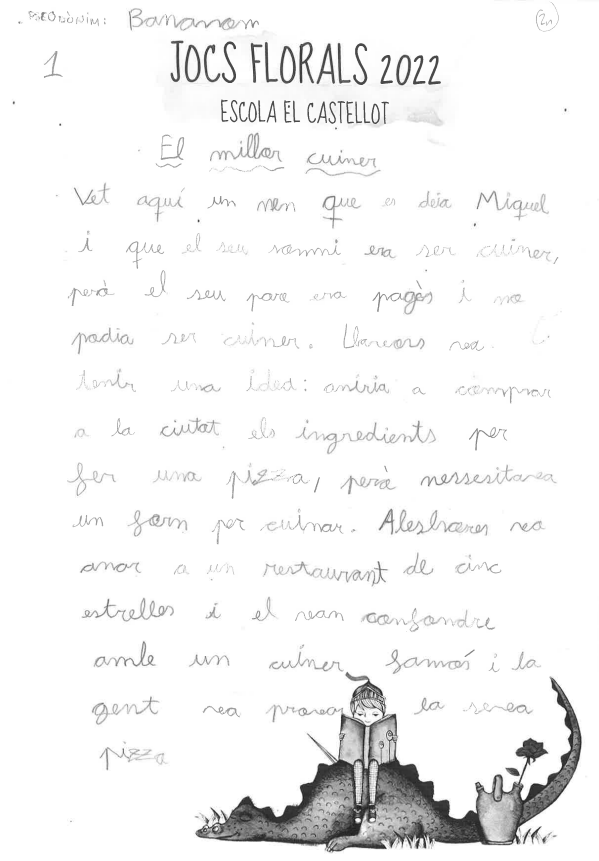 PSEUDÒNIM: Bananom
2n
1
JOCS FLORALS 2022
ESCOLA EL CASTELLOT
El millor cuiner
Vet aquí un nen que es deia Miquel
i que el seu somni era ser cuiner,
però el seu pare era pagès i no
podia ser cuiner. Llavors va
tenir una idea: aniria a comprar
a la ciutat els ingredients per
fer una pizza, però nessesitava
un forn per cuinar. Aleshores va
anar a un restaurant de cinc
estrelles i el van confondre
amb un cuiner famós i la
gent va provar la seva
pizza